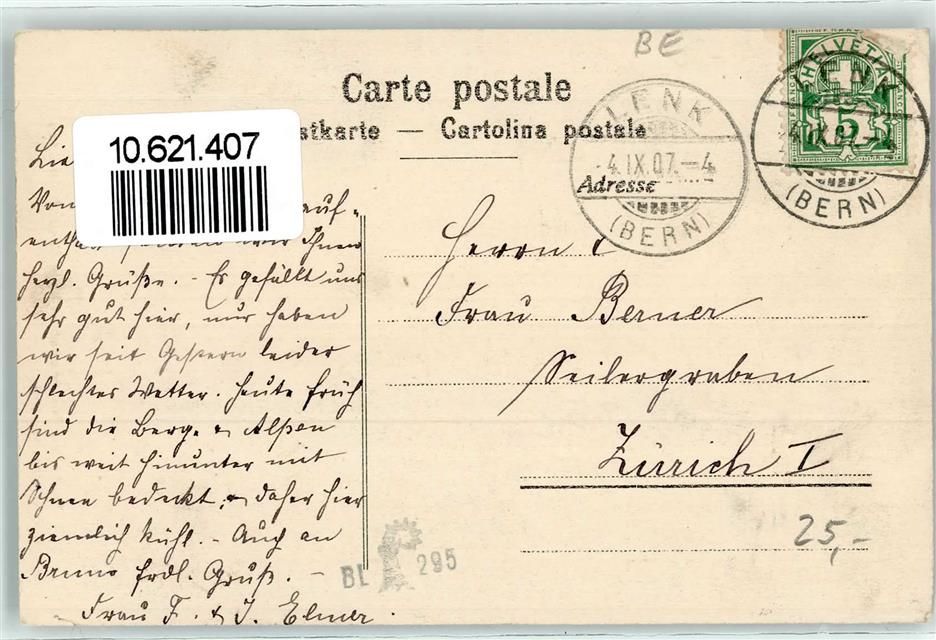 BE
Carte postale
stkarte — Cartolina postale
Adresse
LENK
4.IX.07.–4
(BERN)
HELVETIA
5
LENK
4.IX.07.–4
(BERN)
10.621.407
Lie
Von auf-
enthalt Ihnen
herzl. Grüße. – Es gefällt uns
sehr gut hier, nur haben
wir seit Gestern leider
schlechtes Wetter. Heute früh
sind die Berge & Alpen
bis weit hinunter mit
Schnee bedeckt, & daher hier
ziemlich kühl. – Auch an
Bruno frdl. Gruß. –
Frau F. & J. Elmer.
Herrn &
Frau Berner
Seilergraben
Zürich I
25,-
BL 295